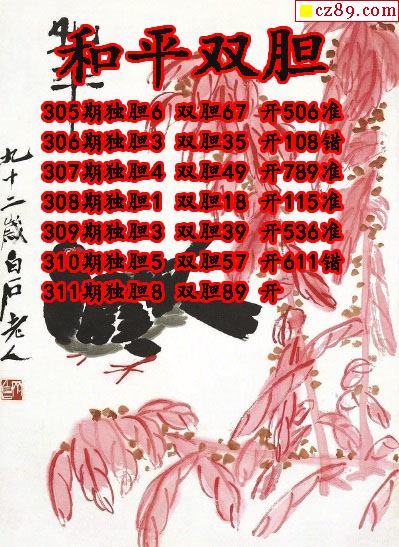 cz89.com
和平双胆
305期独胆6 双胆67 开506准
306期独胆3 双胆35 开108错
307期独胆4 双胆49 开789准
308期独胆1 双胆18 开115准
309期独胆3 双胆39 开536准
310期独胆5 双胆57 开611错
311期独胆8 双胆89 开
九十二岁白石老人